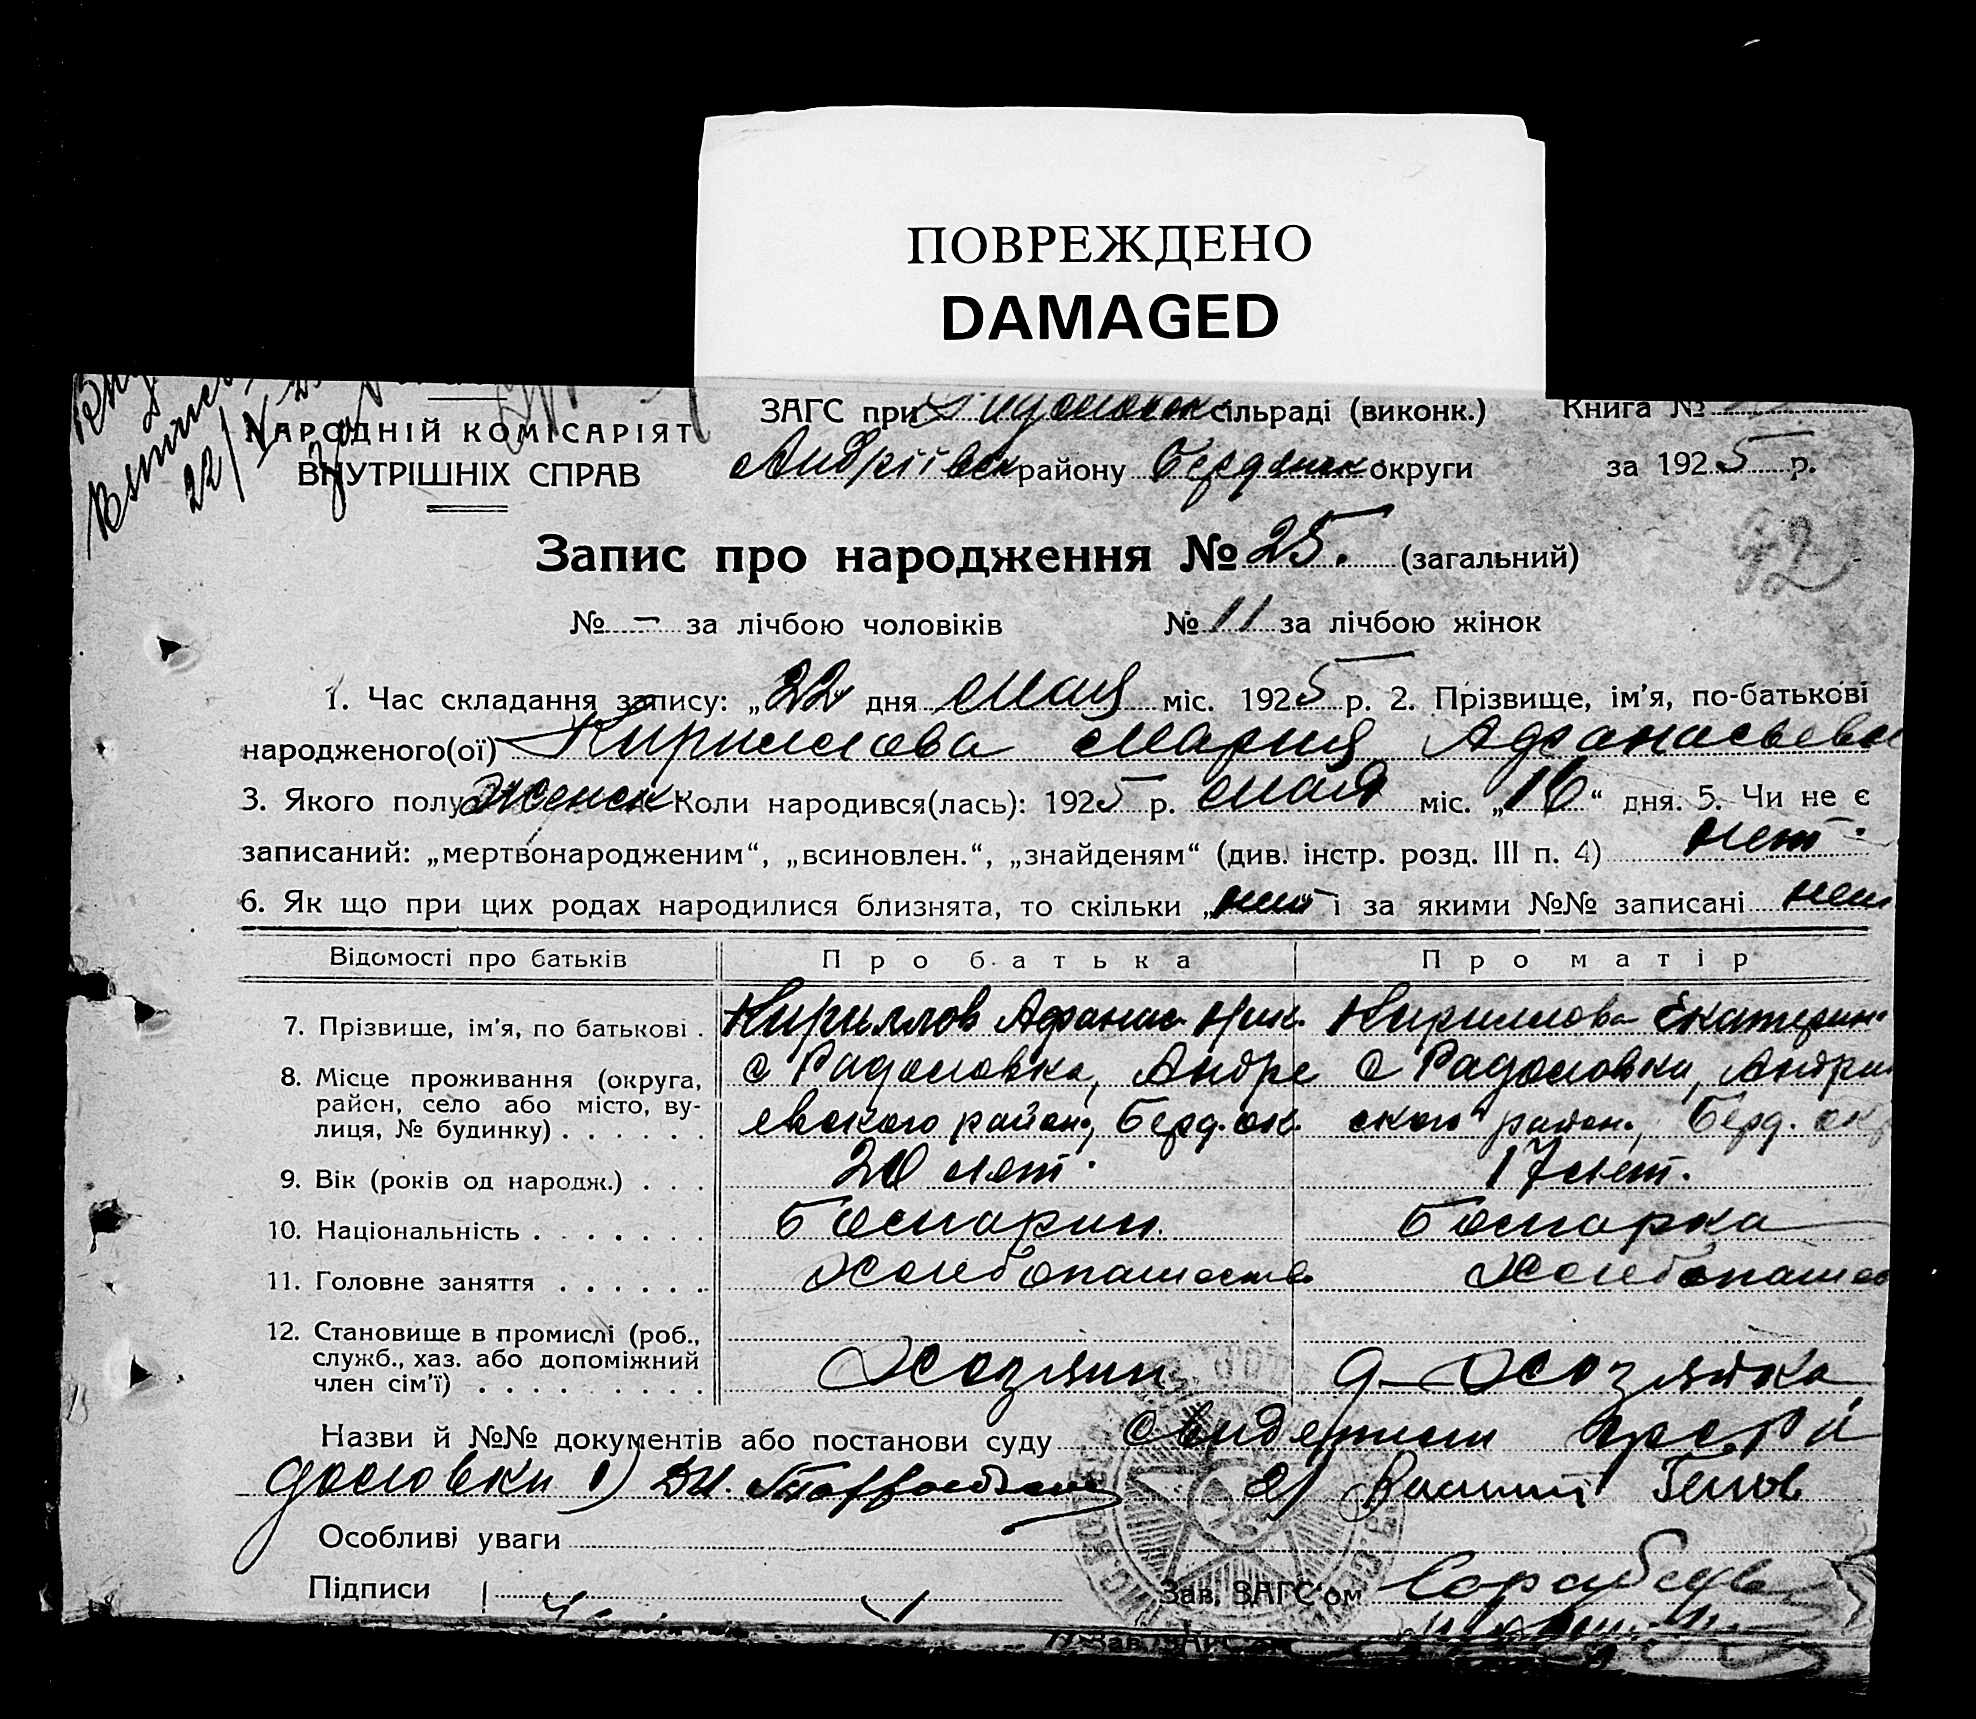 ПОВРЕЖДЕНО
DAMAGED
ЗАГС при сільраді (виконк.) Книга №
НАРОДНІЙ КОМІСАРІЯТ
ВНУТРІШНІХ СПРАВ
Андріївск району Бердянск округи за 1925 р.
22/
Запис про народження № 25. (загальний)
92
№ - за лічбою чоловіків № 11 за лічбою жінок
1. Час складання запису: „22 дня мая міс. 1925 р. 2. Прізвище, ім’я, по-батькові
народженого(ої) Кириллова Мария Афанасьевна
3. Якого полу Женск Коли народився(лась): 1925 р. мая міс. „16“ дня. 5. Чи не є
записаний: „мертвонародженим“, „всиновлен.“, „знайденям“ (див. інстр. розд. III п. 4) нет.
6. Як що при цих родах народилися близнята, то скільки „нет і за якими №№ записані нет
Відомості про батьків Про батька Про матір
7. Прізвище, ім’я, по батькові . Кириллов Афанас. Ник. Кириллова Екатерин.
8. Місце проживання (округа, с Радоловка, Андре с Радоловки, Андри
район, село або місто, ву-
лиця, № будинку) . . . . . . евского район., Берд. ок. ского район., Берд. окр
9. Вік (років од народж.) . . . 20 лет. 17 лет.
10. Національність . . . . . . . Болгарин. Болгарка
11. Головне заняття . . . . . . Хлебопашеств. Хлебопашес
12. Становище в промислі (роб.,
служб., хаз. або допоміжний
член сім’ї) . . . . . . . . . Хозяин Д-Хозяйка
Назви й №№ документів або постанови суду Свидетели гр. с. Ра
доловки 1) Дм. 2) Василий Генов
Особливі уваги
Підписи Зав. ЗАГС’ом